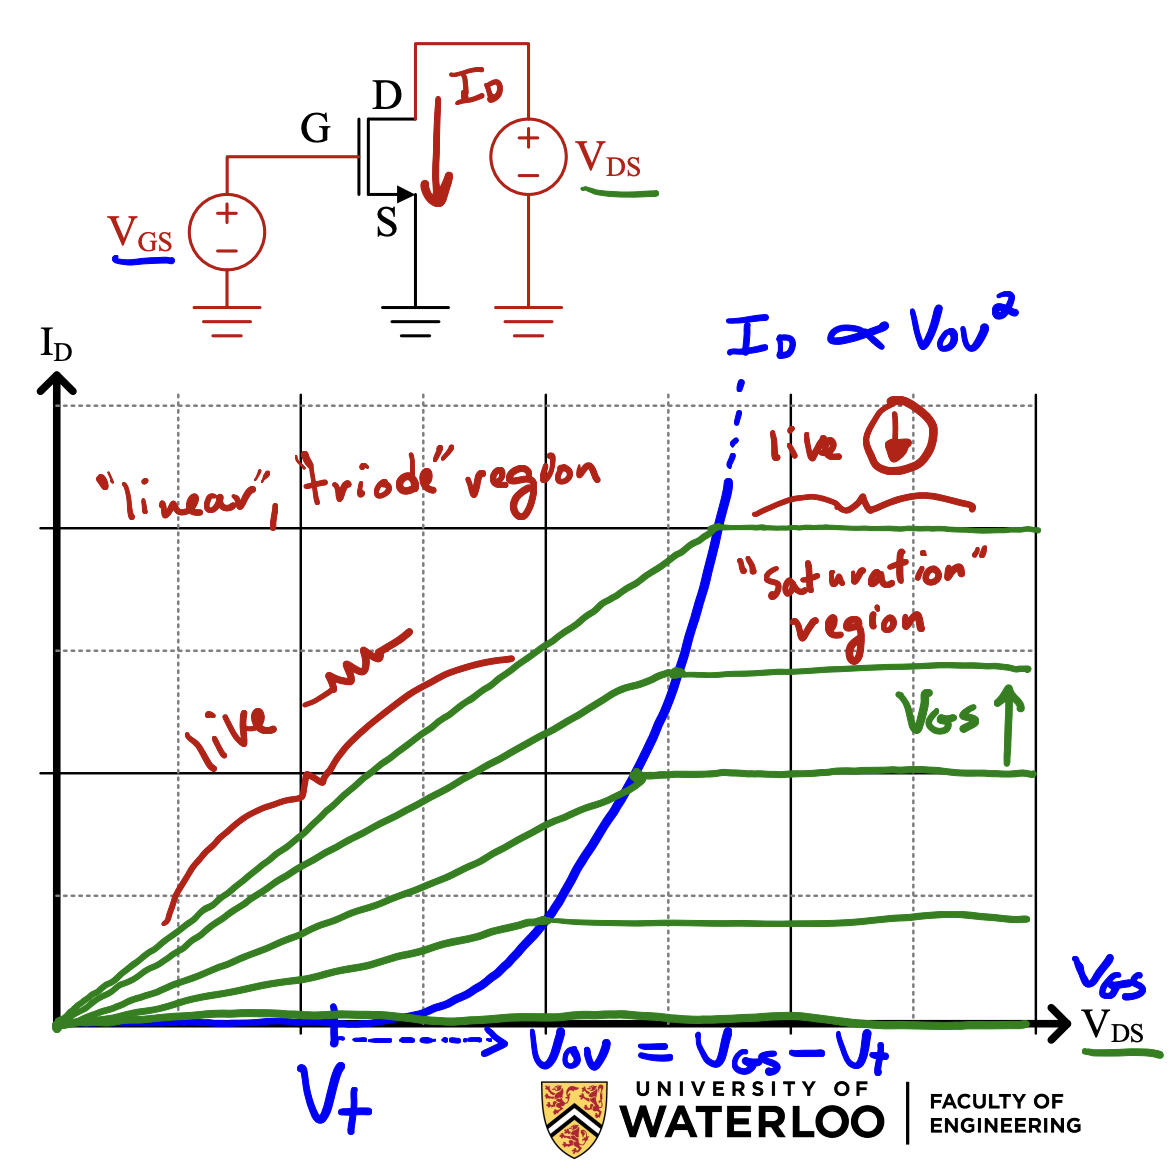 D
I_D
G
+
−
V_DS
S
V_GS
+
−
I_D ∝ V_OV²
I_D
live ↓
"linear", "triode" region
"saturation"
region
live
V_GS ↑
V_GS
V_DS
V_OV = V_GS − V_t
V_t
UNIVERSITY OF
WATERLOO
FACULTY OF
ENGINEERING